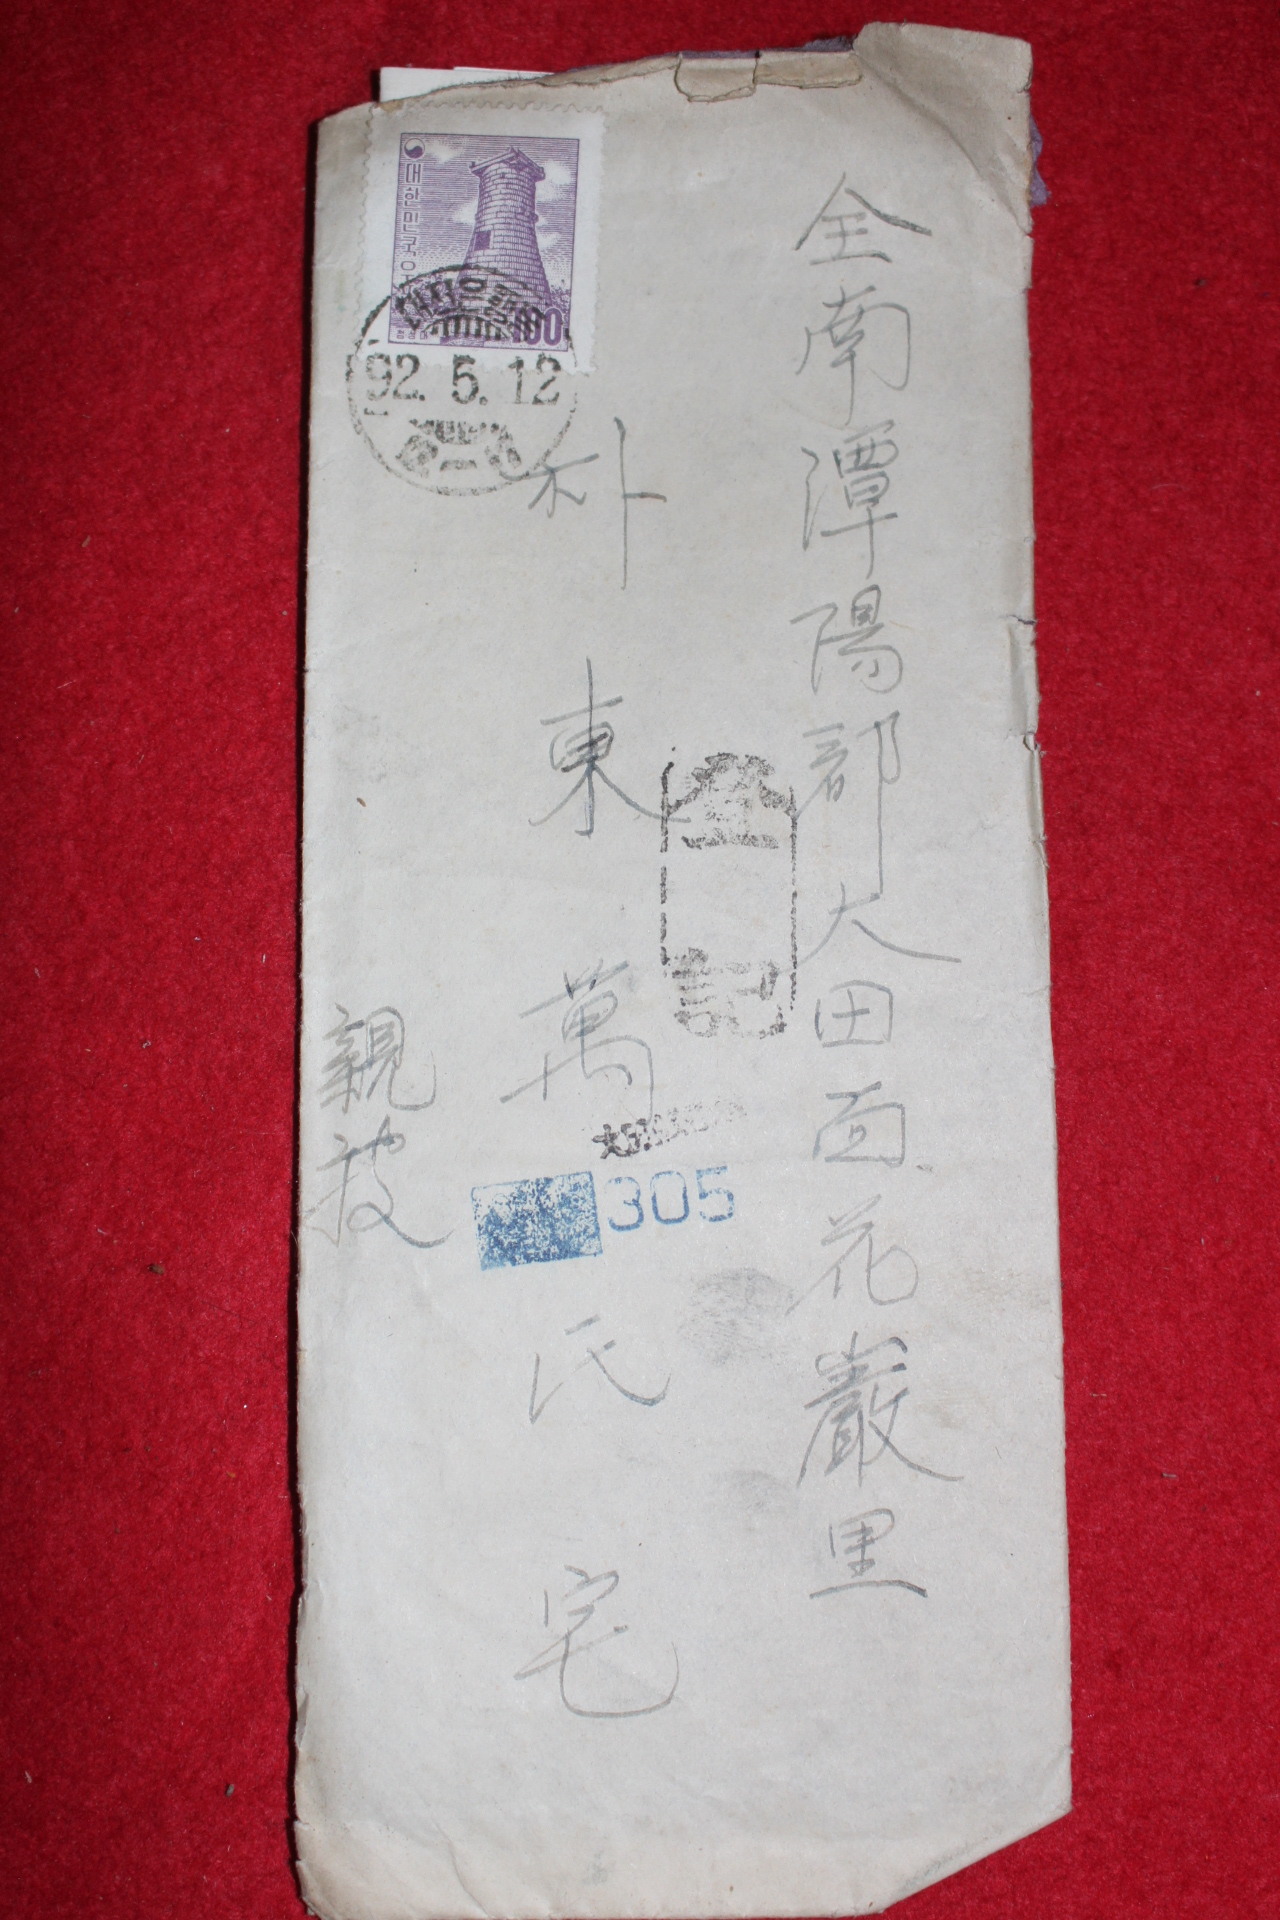 全南潭陽郡大田面花巖里
朴東萬氏宅
親披
대한민국우표
100
대전은행동
92.5.12
登記
305